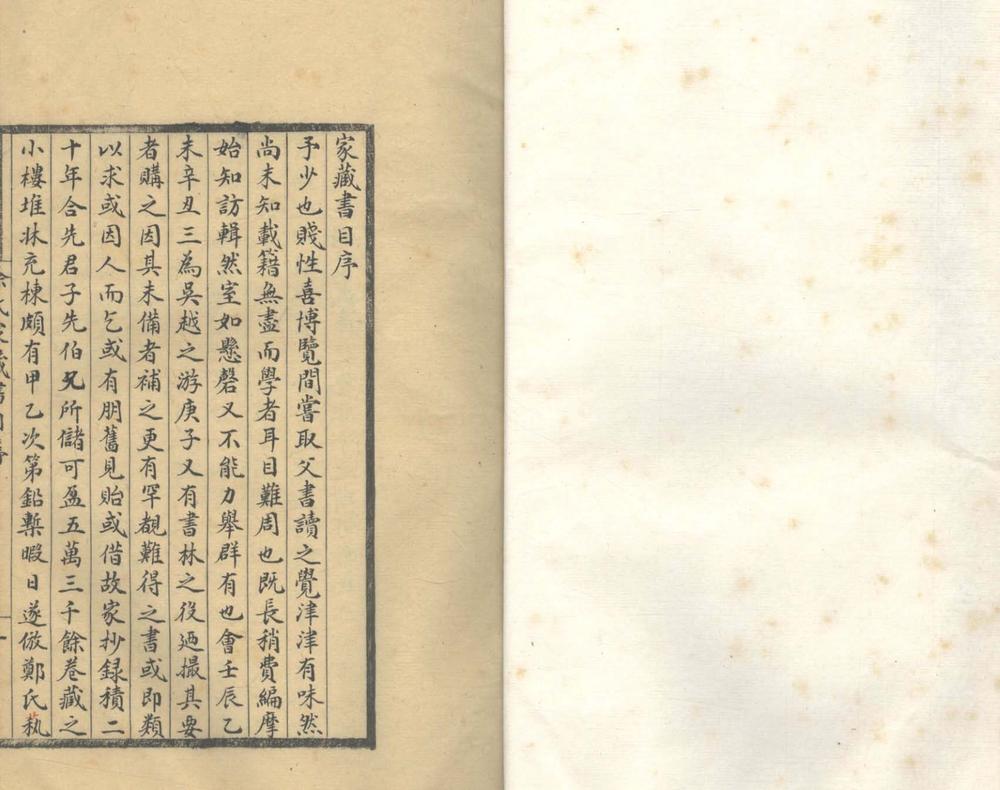 家藏書目序
予少也賤性喜博覽間嘗取父書讀之覺津津有味然
尚未知載籍無盡而學者耳目難周也既長稍費編摩
始知訪輯然室如懸磬又不能力舉群有也會壬辰乙
未辛丑三為吳越之游庚子又有書林之役廼撮其要
者購之因其未備者補之更有罕覩難得之書或即類
以求或因人而乞或有朋舊見貽或借故家抄錄積二
十年合先君子先伯兄所儲可盈五萬三千餘卷藏之
小樓堆牀充棟頗有甲乙次第鉛槧暇日遂倣鄭氏蓺